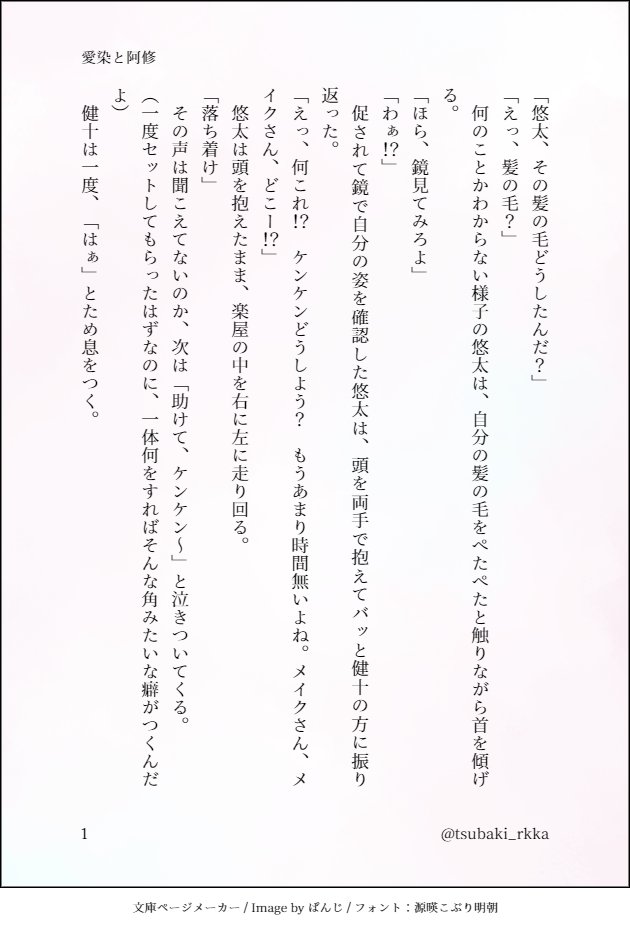 愛染と阿修
「悠太、その髪の毛どうしたんだ？」
「えっ、髪の毛？」
　何のことかわからない様子の悠太は、自分の髪の毛をぺたぺたと触りながら首を傾げ
る。
「ほら、鏡見てみろよ」
「わぁ!?」
　促されて鏡で自分の姿を確認した悠太は、頭を両手で抱えてバッと健十の方に振り
返った。
「えっ、何これ!?　ケンケンどうしよう？　もうあまり時間無いよね。メイクさん、メ
イクさん、どこー!?」
　悠太は頭を抱えたまま、楽屋の中を右に左に走り回る。
「落ち着け」
　その声は聞こえてないのか、次は「助けて、ケンケン〜」と泣きついてくる。
（一度セットしてもらったはずなのに、一体何をすればそんな角みたいな癖がつくんだ
よ）
　健十は一度、「はぁ」とため息をつく。
1
@tsubaki_rkka
文庫ページメーカー / Image by ぱんじ / フォント：源暎こぶり明朝